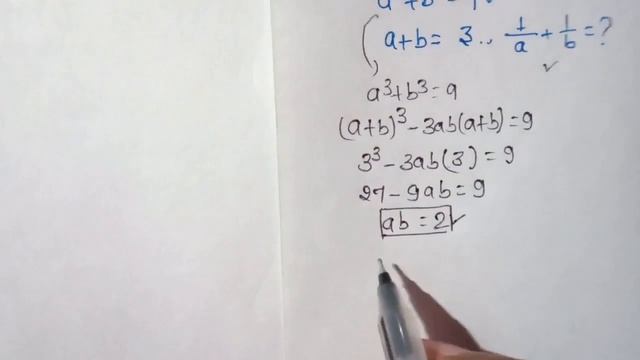 a+b = 3 .., 1/a + 1/b = ?
a³+b³ = 9
(a+b)³ - 3ab(a+b) = 9
3³ - 3ab(3) = 9
27 - 9ab = 9
ab = 2 ✓